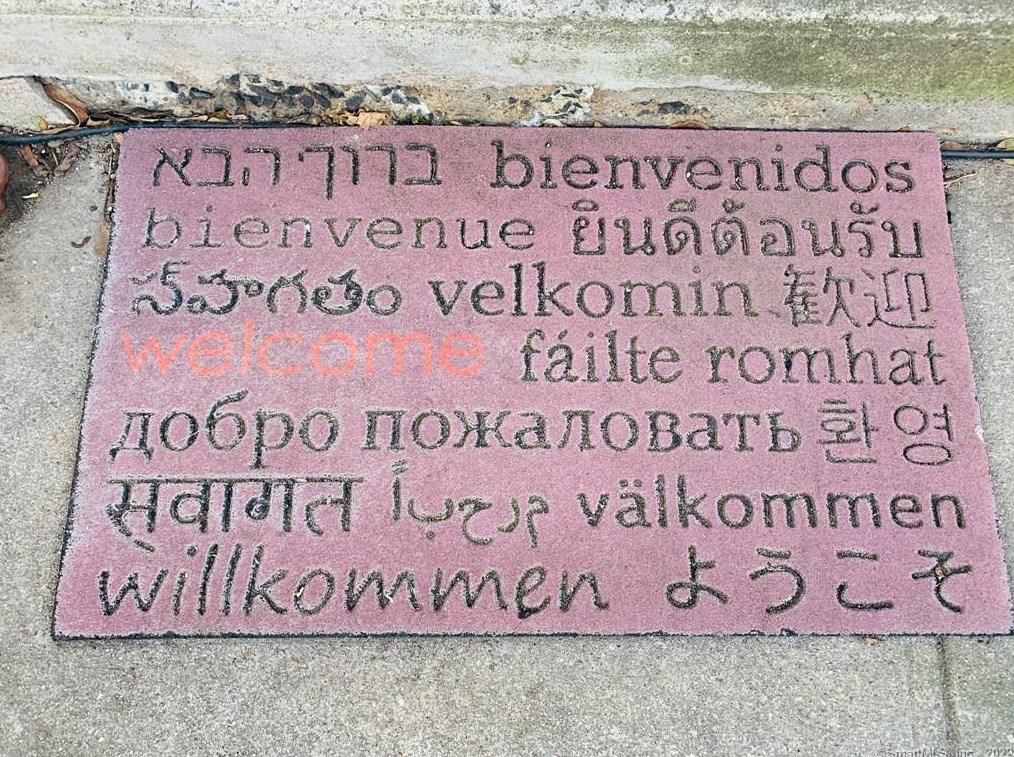 ברוך הבא bienvenidos
bienvenue ยินดีต้อนรับ
స్‌వాగతం velkomin 歓迎
welcome fáilte romhat
добро пожаловать 환영
स्‌वागत مرحباً välkommen
willkommen ようこそ